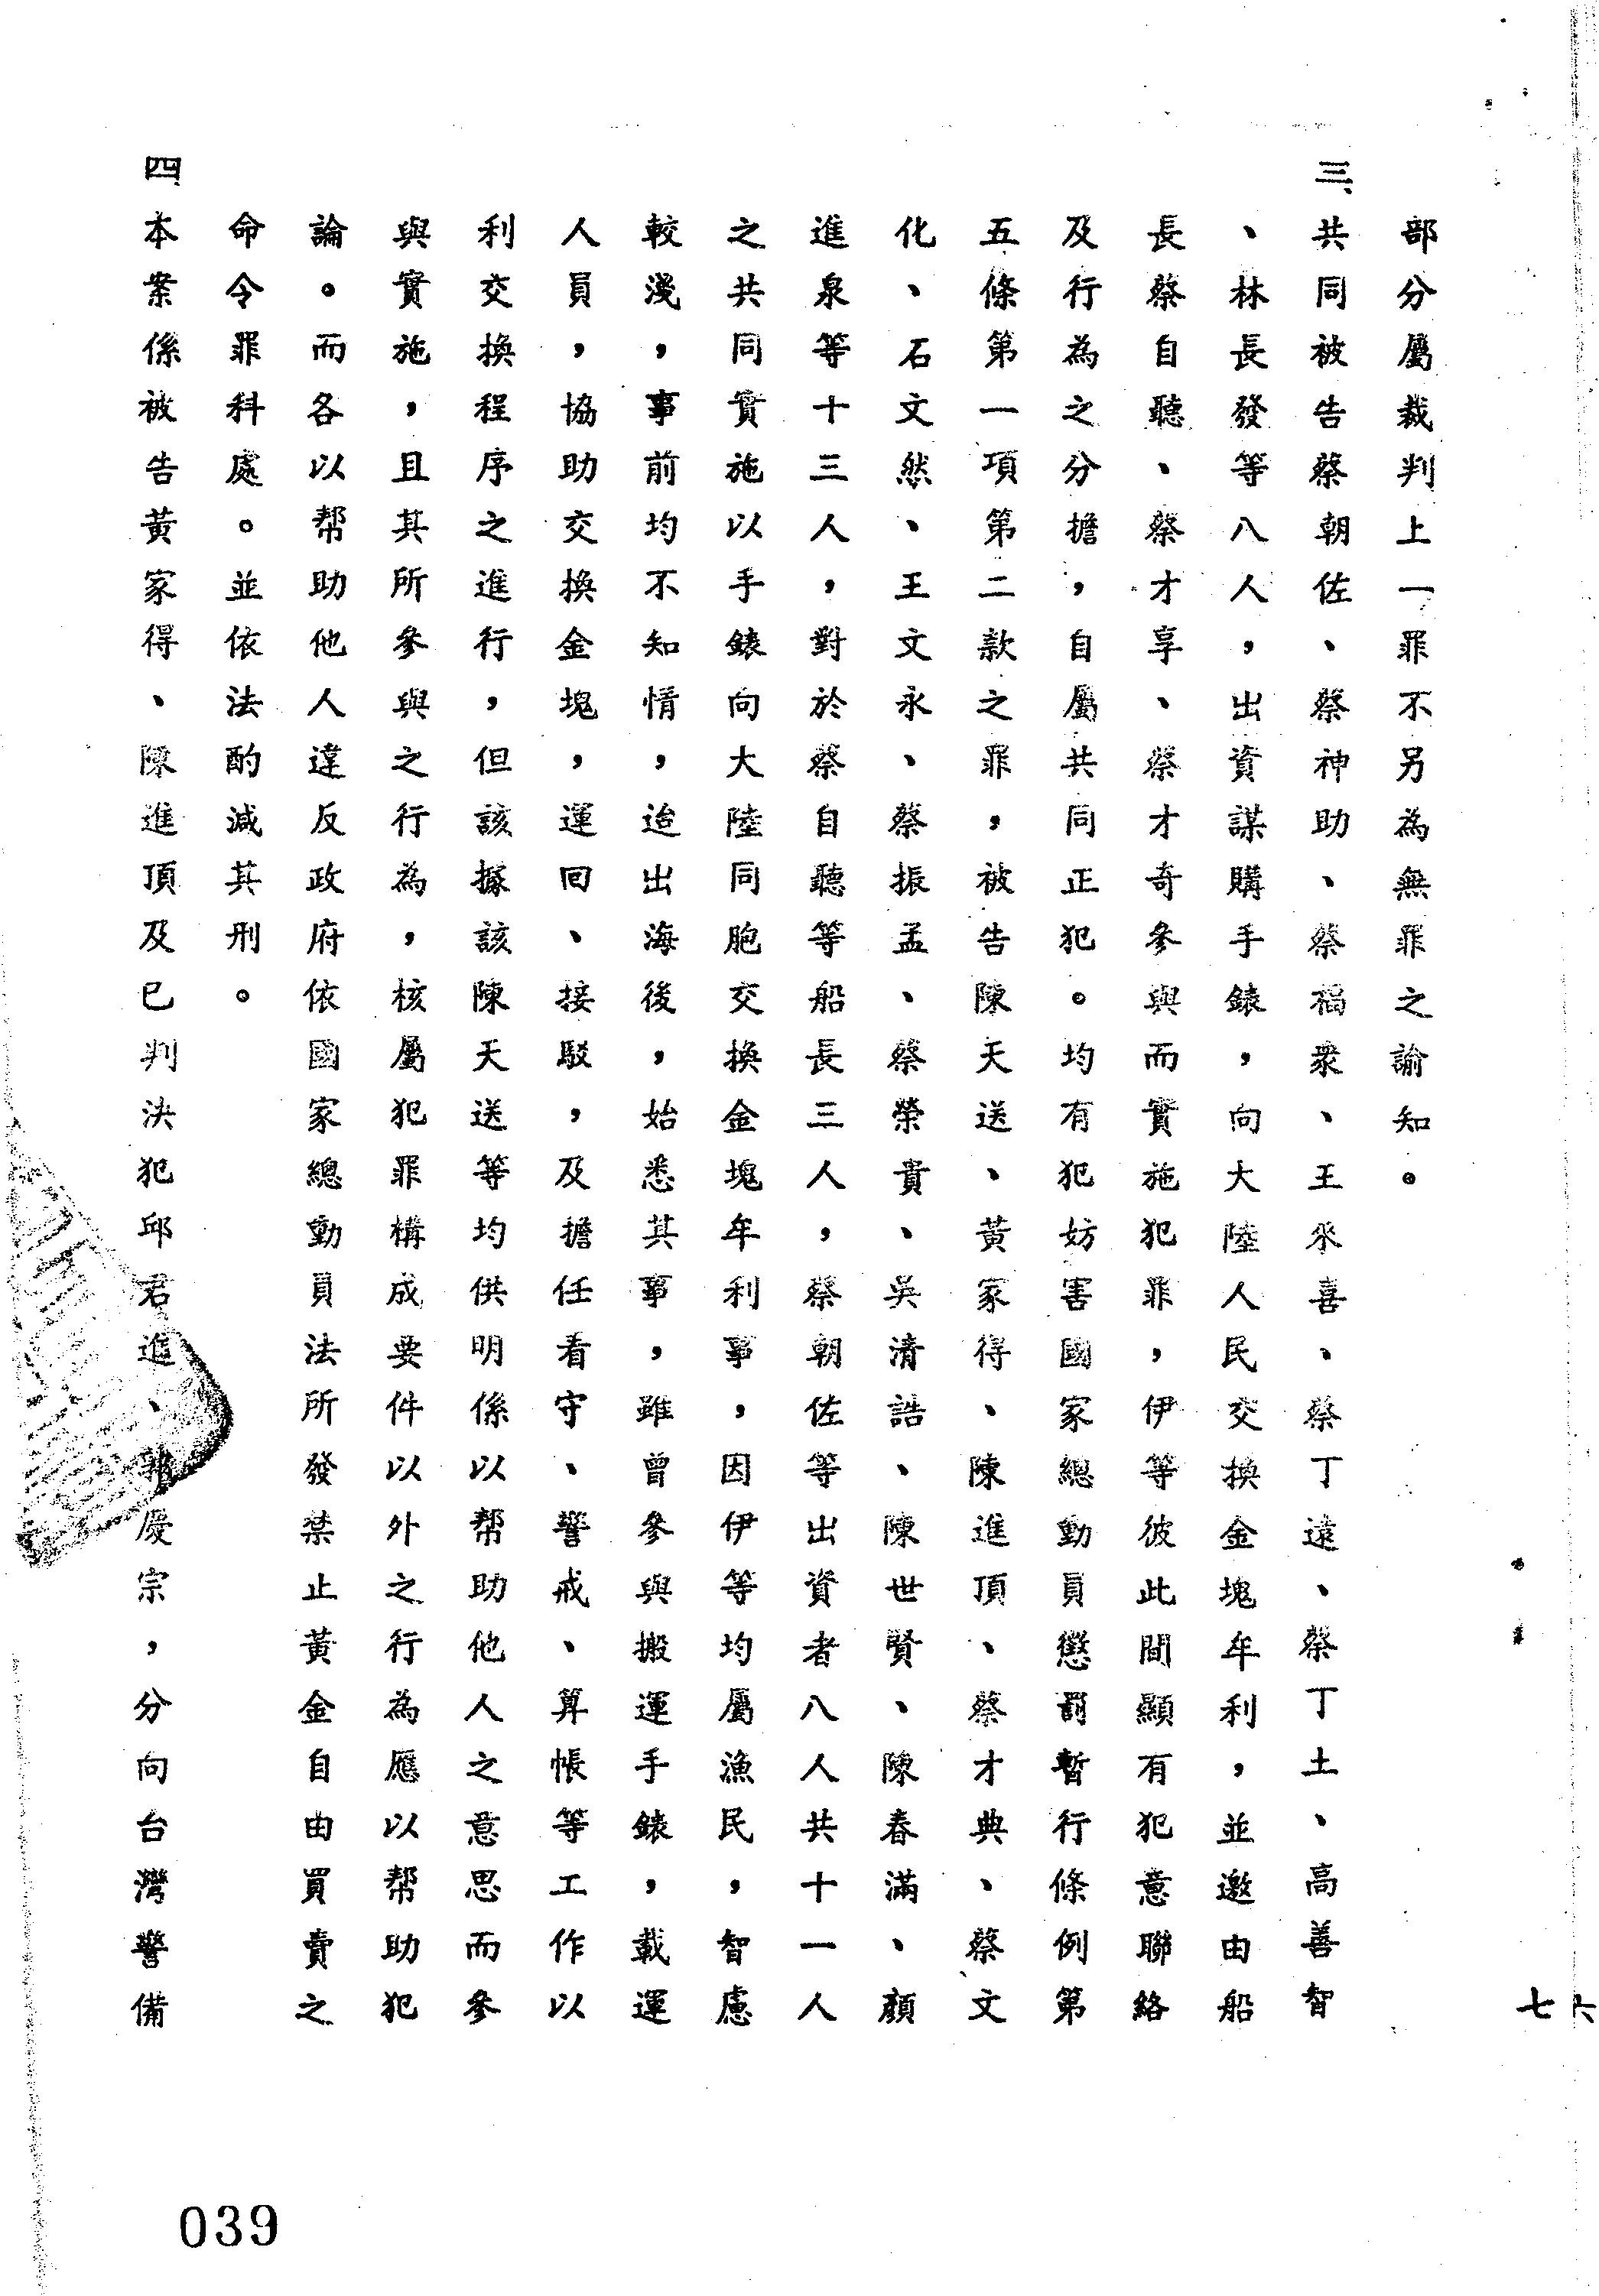 七六
部分屬裁判上一罪不另為無罪之諭知。
三、共同被告蔡朝佐、蔡神助、蔡福衆、王釆喜、蔡丁遠、蔡丁土、高善智
、林長發等八人，出資謀購手錶，向大陸人民交換金塊牟利，並邀由船
長蔡自聽、蔡才享、蔡才奇參與而實施犯罪，伊等彼此間顯有犯意聯絡
及行為之分擔，自屬共同正犯。均有犯妨害國家總動員懲罰暫行條例第
五條第一項第二款之罪，被告陳天送、黃家得、陳進頂、蔡才典、蔡文
化、石文然、王文永、蔡振孟、蔡榮貴、吳清誥、陳世賢、陳春滿、顏
進泉等十三人，對於蔡自聽等船長三人，蔡朝佐等出資者八人共十一人
之共同實施以手錶向大陸同胞交換金塊牟利事，因伊等均屬漁民，智慮
較淺，事前均不知情，迨出海後，始悉其事，雖曾參與搬運手錶，載運
人員，協助交換金塊，運回、接駁，及擔任看守、警戒、算帳等工作以
利交換程序之進行，但該據該陳天送等均供明係以帮助他人之意思而參
與實施，且其所參與之行為，核屬犯罪構成要件以外之行為應以帮助犯
論。而各以帮助他人違反政府依國家總動員法所發禁止黃金自由買賣之
命令罪科處。並依法酌減其刑。
四、本案係被告黃家得、陳進頂及已判決犯邱君進、郭慶宗，分向台灣警備
039